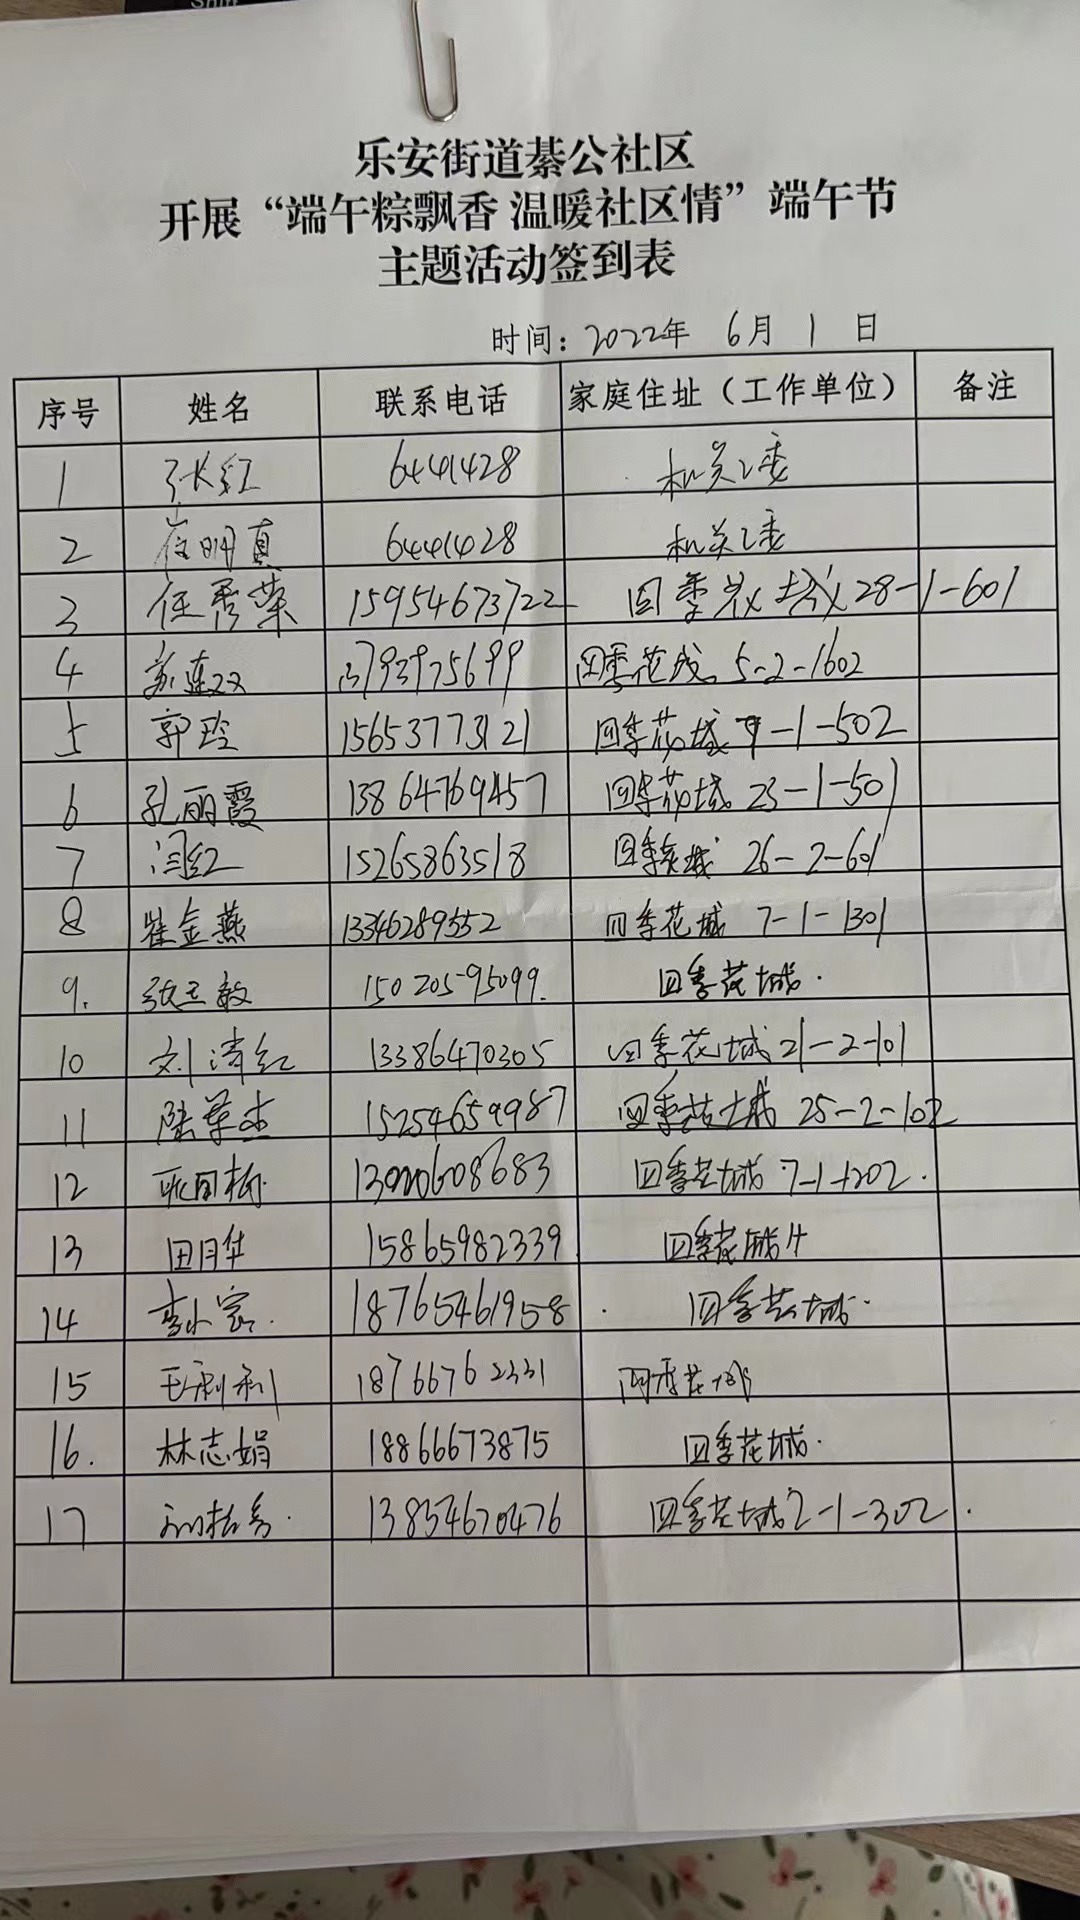 Shift
乐安街道綦公社区
开展“端午粽飘香 温暖社区情”端午节
主题活动签到表
时间：2022年 6月 1 日
序号 姓名 联系电话 家庭住址（工作单位） 备注
1 张红 6441428 机关工委
2 崔明真 6441428 机关工委
3 任秀荣 15954673722 四季花城 28-1-601
4 苏连双 13793975699 四季花城 5-2-1602
5 郭玲 15653773121 四季花城 9-1-502
6 孔丽霞 13864769457 四季花城 23-1-501
7 闫红 15265863518 四季花城 26-2-601
8 崔金燕 13346289552 四季花城 7-1-1301
9. 张玉敏 15020595099. 四季花城.
10 刘清红 13386470305 四季花城 21-2-101
11 陈荣杰 15254659987 四季花城 25-2-102
12 13220608683 四季花城 7-1-1202.
13 田月华 15865982339 四季花城
14 李小寒. 18765461958 四季花城.
15 毛利利 18766762331 四季花城
16. 林志娟 18866673875 四季花城.
17 13854670476 四季花城 2-1-302.